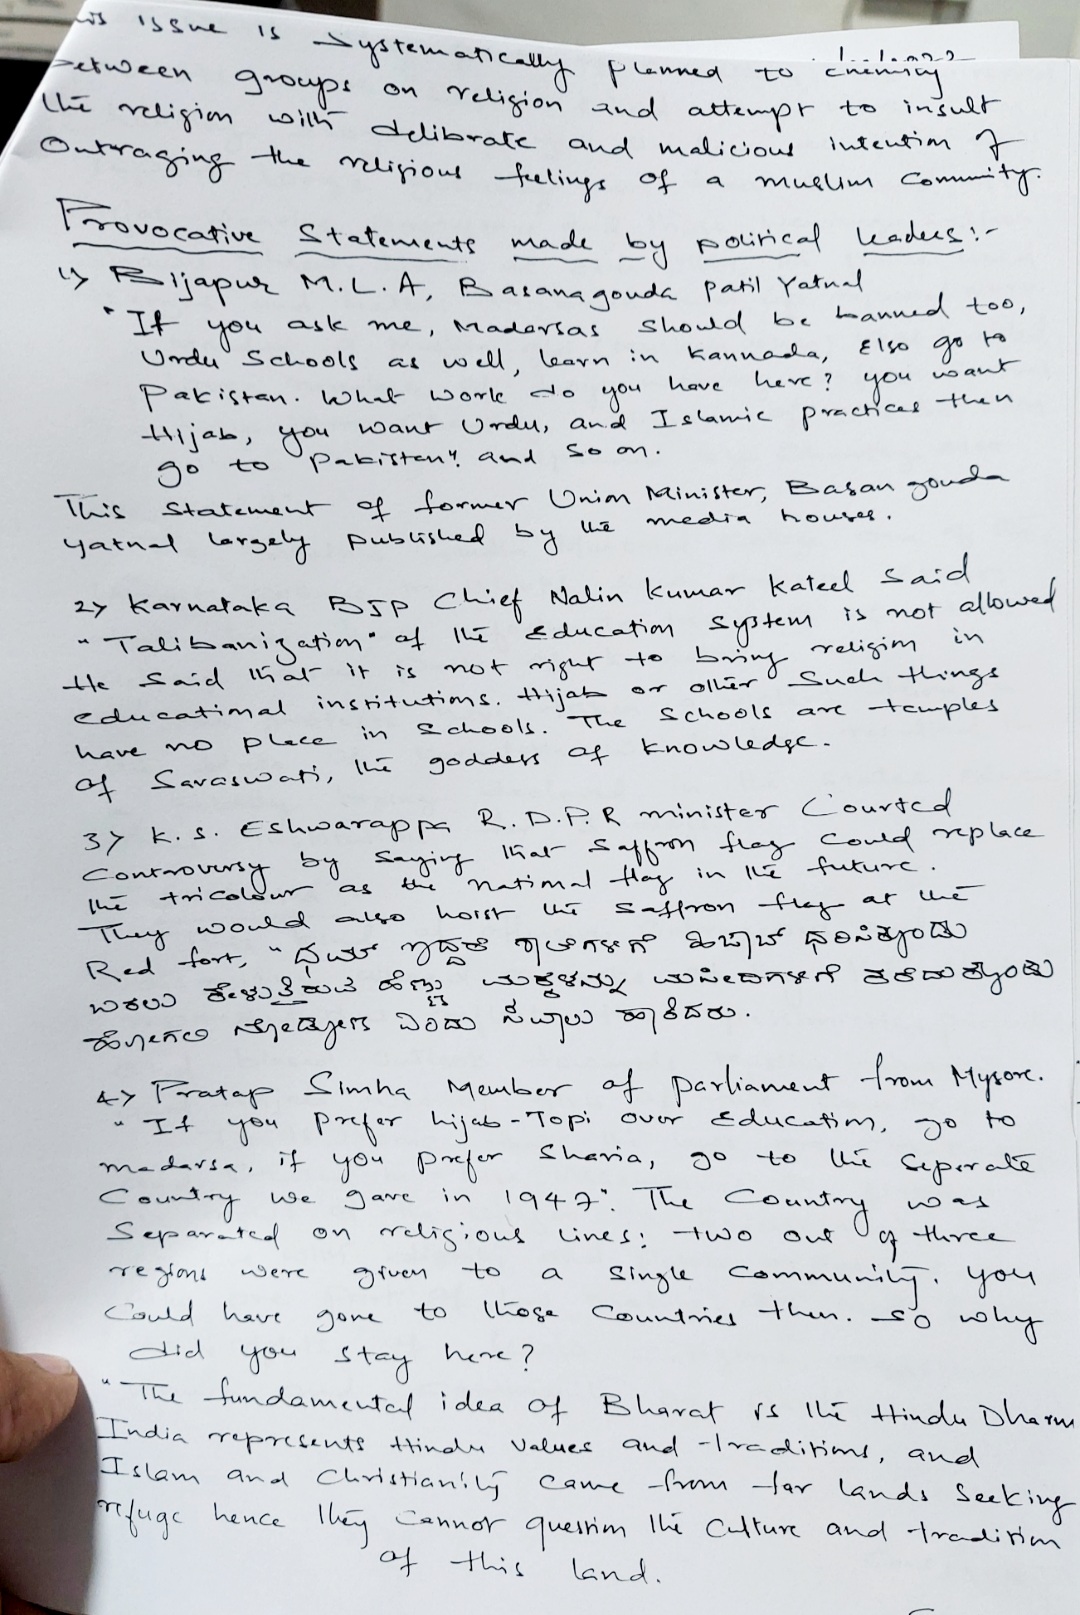 issue is systematically planned to enemity
between groups on religion and attempt to insult
the religion with delibrate and malicious intention of
Outraging the religious feelings of a muslim Community.
Provocative Statements made by political leaders:-
1> Bijapur M.L.A, Basanagouda patil Yatnal
"If you ask me, Madarsas should be banned too,
Urdu Schools as well, learn in Kannada, Else go to
Pakistan. What work do you have here? you want
Hijab, you want Urdu, and Islamic practices then
go to Pakistan" and so on.
This Statement of former Union Minister, Basan gouda
yatnal largely published by the media houses.
2> Karnataka BJP Chief Nalin Kumar Kateel said
"Talibanization" of the Education system is not allowed
He said that it is not right to bring religion in
educational institutions. Hijab or other such things
have no place in schools. The schools are temples
of Saraswati, the goddess of Knowledge.
3> K.S. Eshwarappa R.D.P.R minister Courted
Controversy by saying that saffron flag could replace
the tricolour as the national flag in the future.
They would also hoist the saffron flag at the
Red fort, "ಧೈರ್ಯ ಇದ್ದರೆ ಶಾಲೆಗಳಿಗೆ ಹಿಜಾಬ್ ಧರಿಸಿಕೊಂಡು
ಬರಲು ಕೇಳುತ್ತಿರುವ ಹೆಣ್ಣು ಮಕ್ಕಳನ್ನು ಮಸೀದಿಗಳಿಗೆ ಕರೆದುಕೊಂಡು
ಹೋಗಲಿ ನೋಡೋಣ ಎಂದು ಸವಾಲು ಹಾಕಿದರು.
4> Pratap Simha Member of parliament from Mysore.
"If you prefer hijab-Topi over Education, go to
madarsa, if you prefer Sharia, go to the seperate
Country we gave in 1947". The Country was
Separated on religious lines; two out of three
regions were given to a single community. you
Could have gone to those Countries then. so why
did you stay here?
"The fundamental idea of Bharat is the Hindu Dharm
India represents Hindu values and traditions, and
Islam and Christianity came from far lands seeking
refuge hence they cannot question the culture and tradition
of this land.